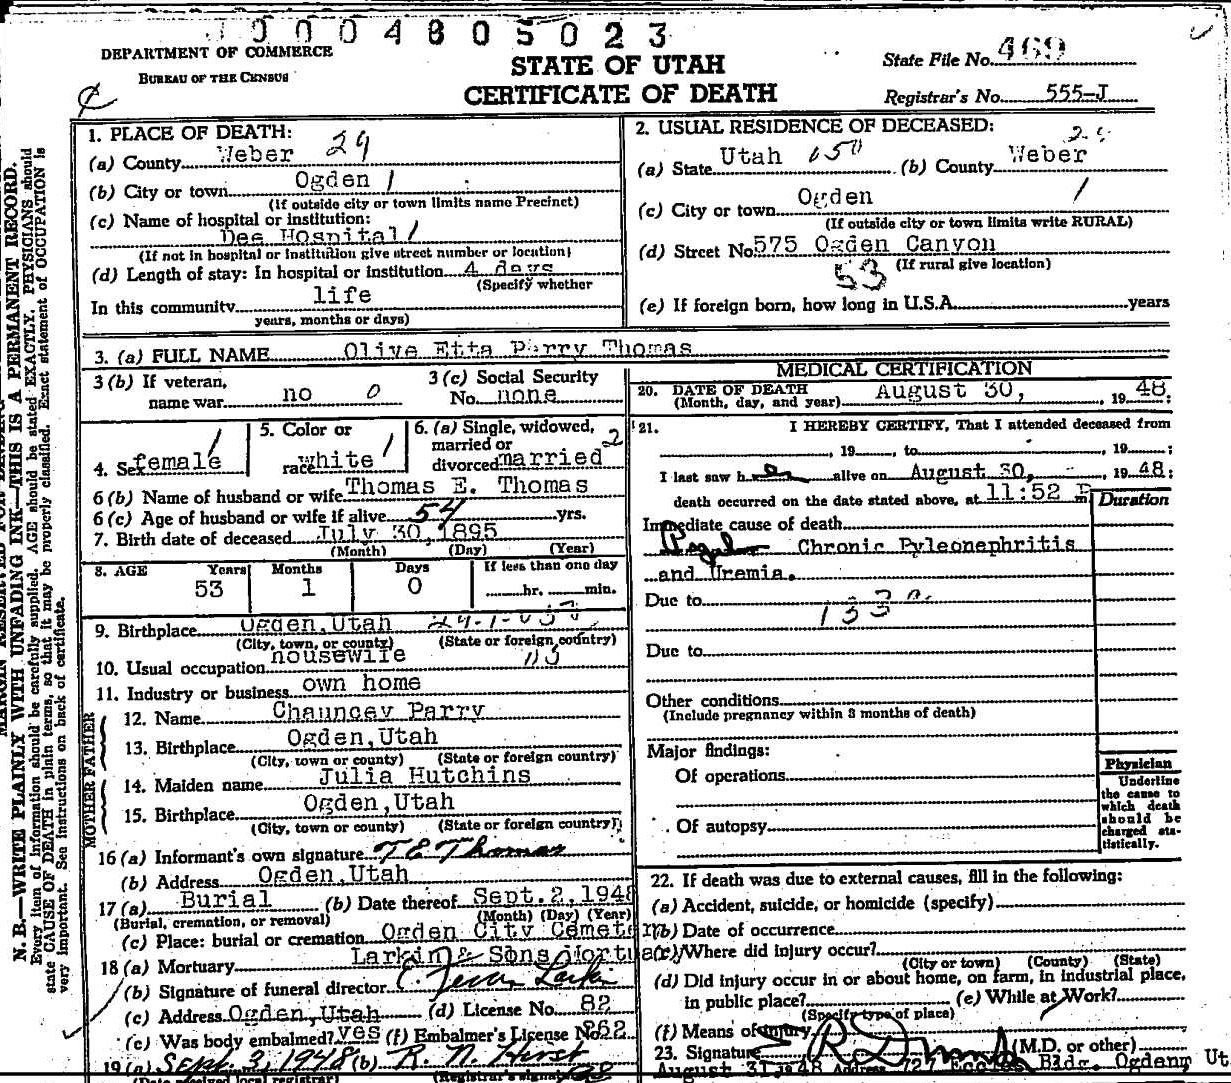 0004805023
DEPARTMENT OF COMMERCE
BUREAU OF THE CENSUS
STATE OF UTAH
CERTIFICATE OF DEATH
State File No. 469
Registrar's No. 555-J
N. B.—WRITE PLAINLY WITH UNFADING INK—THIS IS A PERMANENT RECORD.
Every item of information should be carefully supplied. AGE should be stated EXACTLY. PHYSICIANS should
state CAUSE OF DEATH in plain terms, so that it may be properly classified. Exact statement of OCCUPATION is
very important. See instructions on back of certificate.
1. PLACE OF DEATH:
(a) County Weber 29
(b) City or town Ogden 1
(If outside city or town limits name Precinct)
(c) Name of hospital or institution:
Dee Hospital
(If not in hospital or institution give street number or location)
(d) Length of stay: In hospital or institution 4 days
(Specify whether
In this community life
years, months or days)
2. USUAL RESIDENCE OF DECEASED:
(a) State Utah (b) County Weber
(c) City or town Ogden
(If outside city or town limits write RURAL)
(d) Street No. 575 Ogden Canyon
53 (If rural give location)
(e) If foreign born, how long in U.S.A. years
3. (a) FULL NAME Olive Etta Parry Thomas
3 (b) If veteran, name war no 0
3 (c) Social Security No. none
4. Sex female 1
5. Color or race white 1
6. (a) Single, widowed, married or divorced married 2
6 (b) Name of husband or wife Thomas E. Thomas
6 (c) Age of husband or wife if alive 54 yrs.
7. Birth date of deceased July 30, 1895
(Month) (Day) (Year)
8. AGE Years Months Days If less than one day
53 1 0 hr. min.
9. Birthplace Ogden, Utah
(City, town, or county) (State or foreign country)
10. Usual occupation housewife
11. Industry or business own home
MOTHER FATHER
12. Name Chauncey Parry
13. Birthplace Ogden, Utah
(City, town or county) (State or foreign country)
14. Maiden name Julia Hutchins
15. Birthplace Ogden, Utah
(City, town or county) (State or foreign country)
16 (a) Informant's own signature T E Thomas
(b) Address Ogden, Utah
17 (a) Burial (b) Date thereof Sept. 2, 1948
(Burial, cremation, or removal) (Month) (Day) (Year)
(c) Place: burial or cremation Ogden City Cemetery
18 (a) Mortuary Larkin & Sons Mortuary
(b) Signature of funeral director Larkin
(c) Address Ogden, Utah (d) License No. 82
(e) Was body embalmed? yes (f) Embalmer's License No. 262
19 (a) Sept. 3, 1948 (b) R. N. Hirst
(Date received local registrar) (Registrar's signature)
MEDICAL CERTIFICATION
20. DATE OF DEATH August 30, 1948;
(Month, day, and year)
21. I HEREBY CERTIFY, That I attended deceased from
, 19 , to , 19 ;
I last saw her alive on August 30, 1948;
death occurred on the date stated above, at 11:52 P m.
Duration
Immediate cause of death
Chronic Pyleonephritis
and Uremia.
Due to
Due to
Other conditions
(Include pregnancy within 3 months of death)
Major findings:
Of operations
Of autopsy
Physician
Underline
the cause to
which death
should be
charged sta-
tistically.
22. If death was due to external causes, fill in the following:
(a) Accident, suicide, or homicide (specify)
(b) Date of occurrence
(c) Where did injury occur?
(City or town) (County) (State)
(d) Did injury occur in or about home, on farm, in industrial place,
in public place? (e) While at Work?
(Specify type of place)
(f) Means of injury
23. Signature (M.D. or other)
August 31, 1948 Address 727 Eccles Bldg. Ogden, Ut